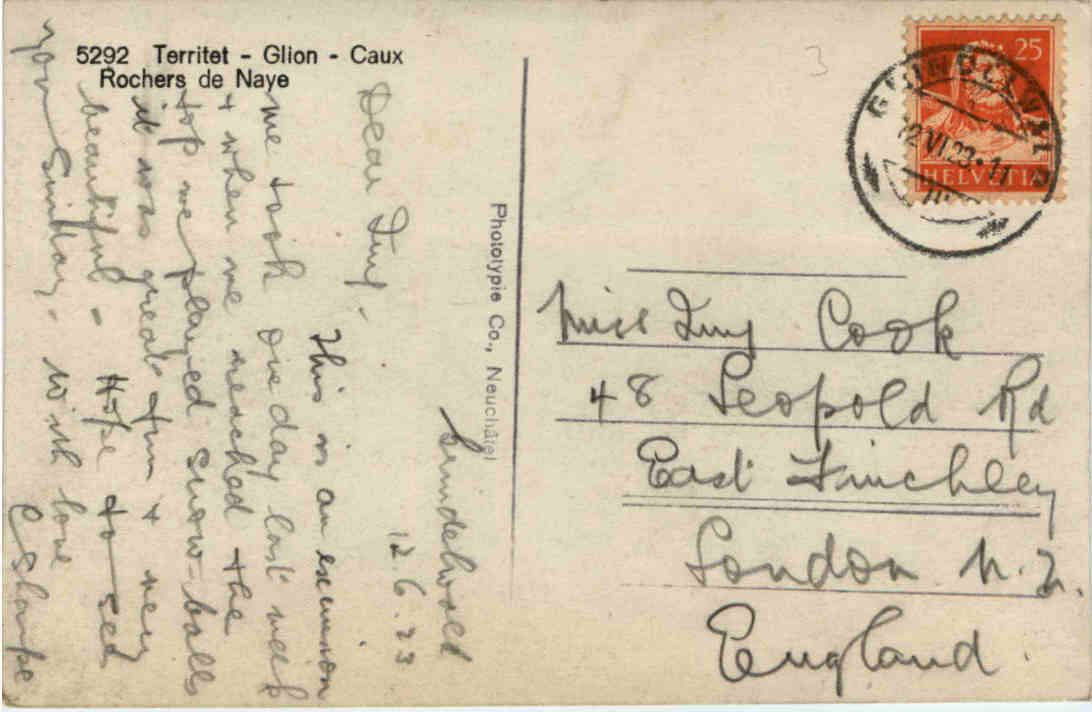 5292 Territet - Glion - Caux
Rochers de Naye
Grindelwald
12.6.23
Dear
This is an excursion
we took one day last week
& when we reached the
top we played snow-balls
it was great fun & very
beautiful - Hope to see
you Sunday - With love
Phototypie Co., Neuchâtel
25
HELVETIA
GRINDELWALD
12 VI 23
Miss Cook
48 Leopold Rd
East Finchley
London N.2.
England.